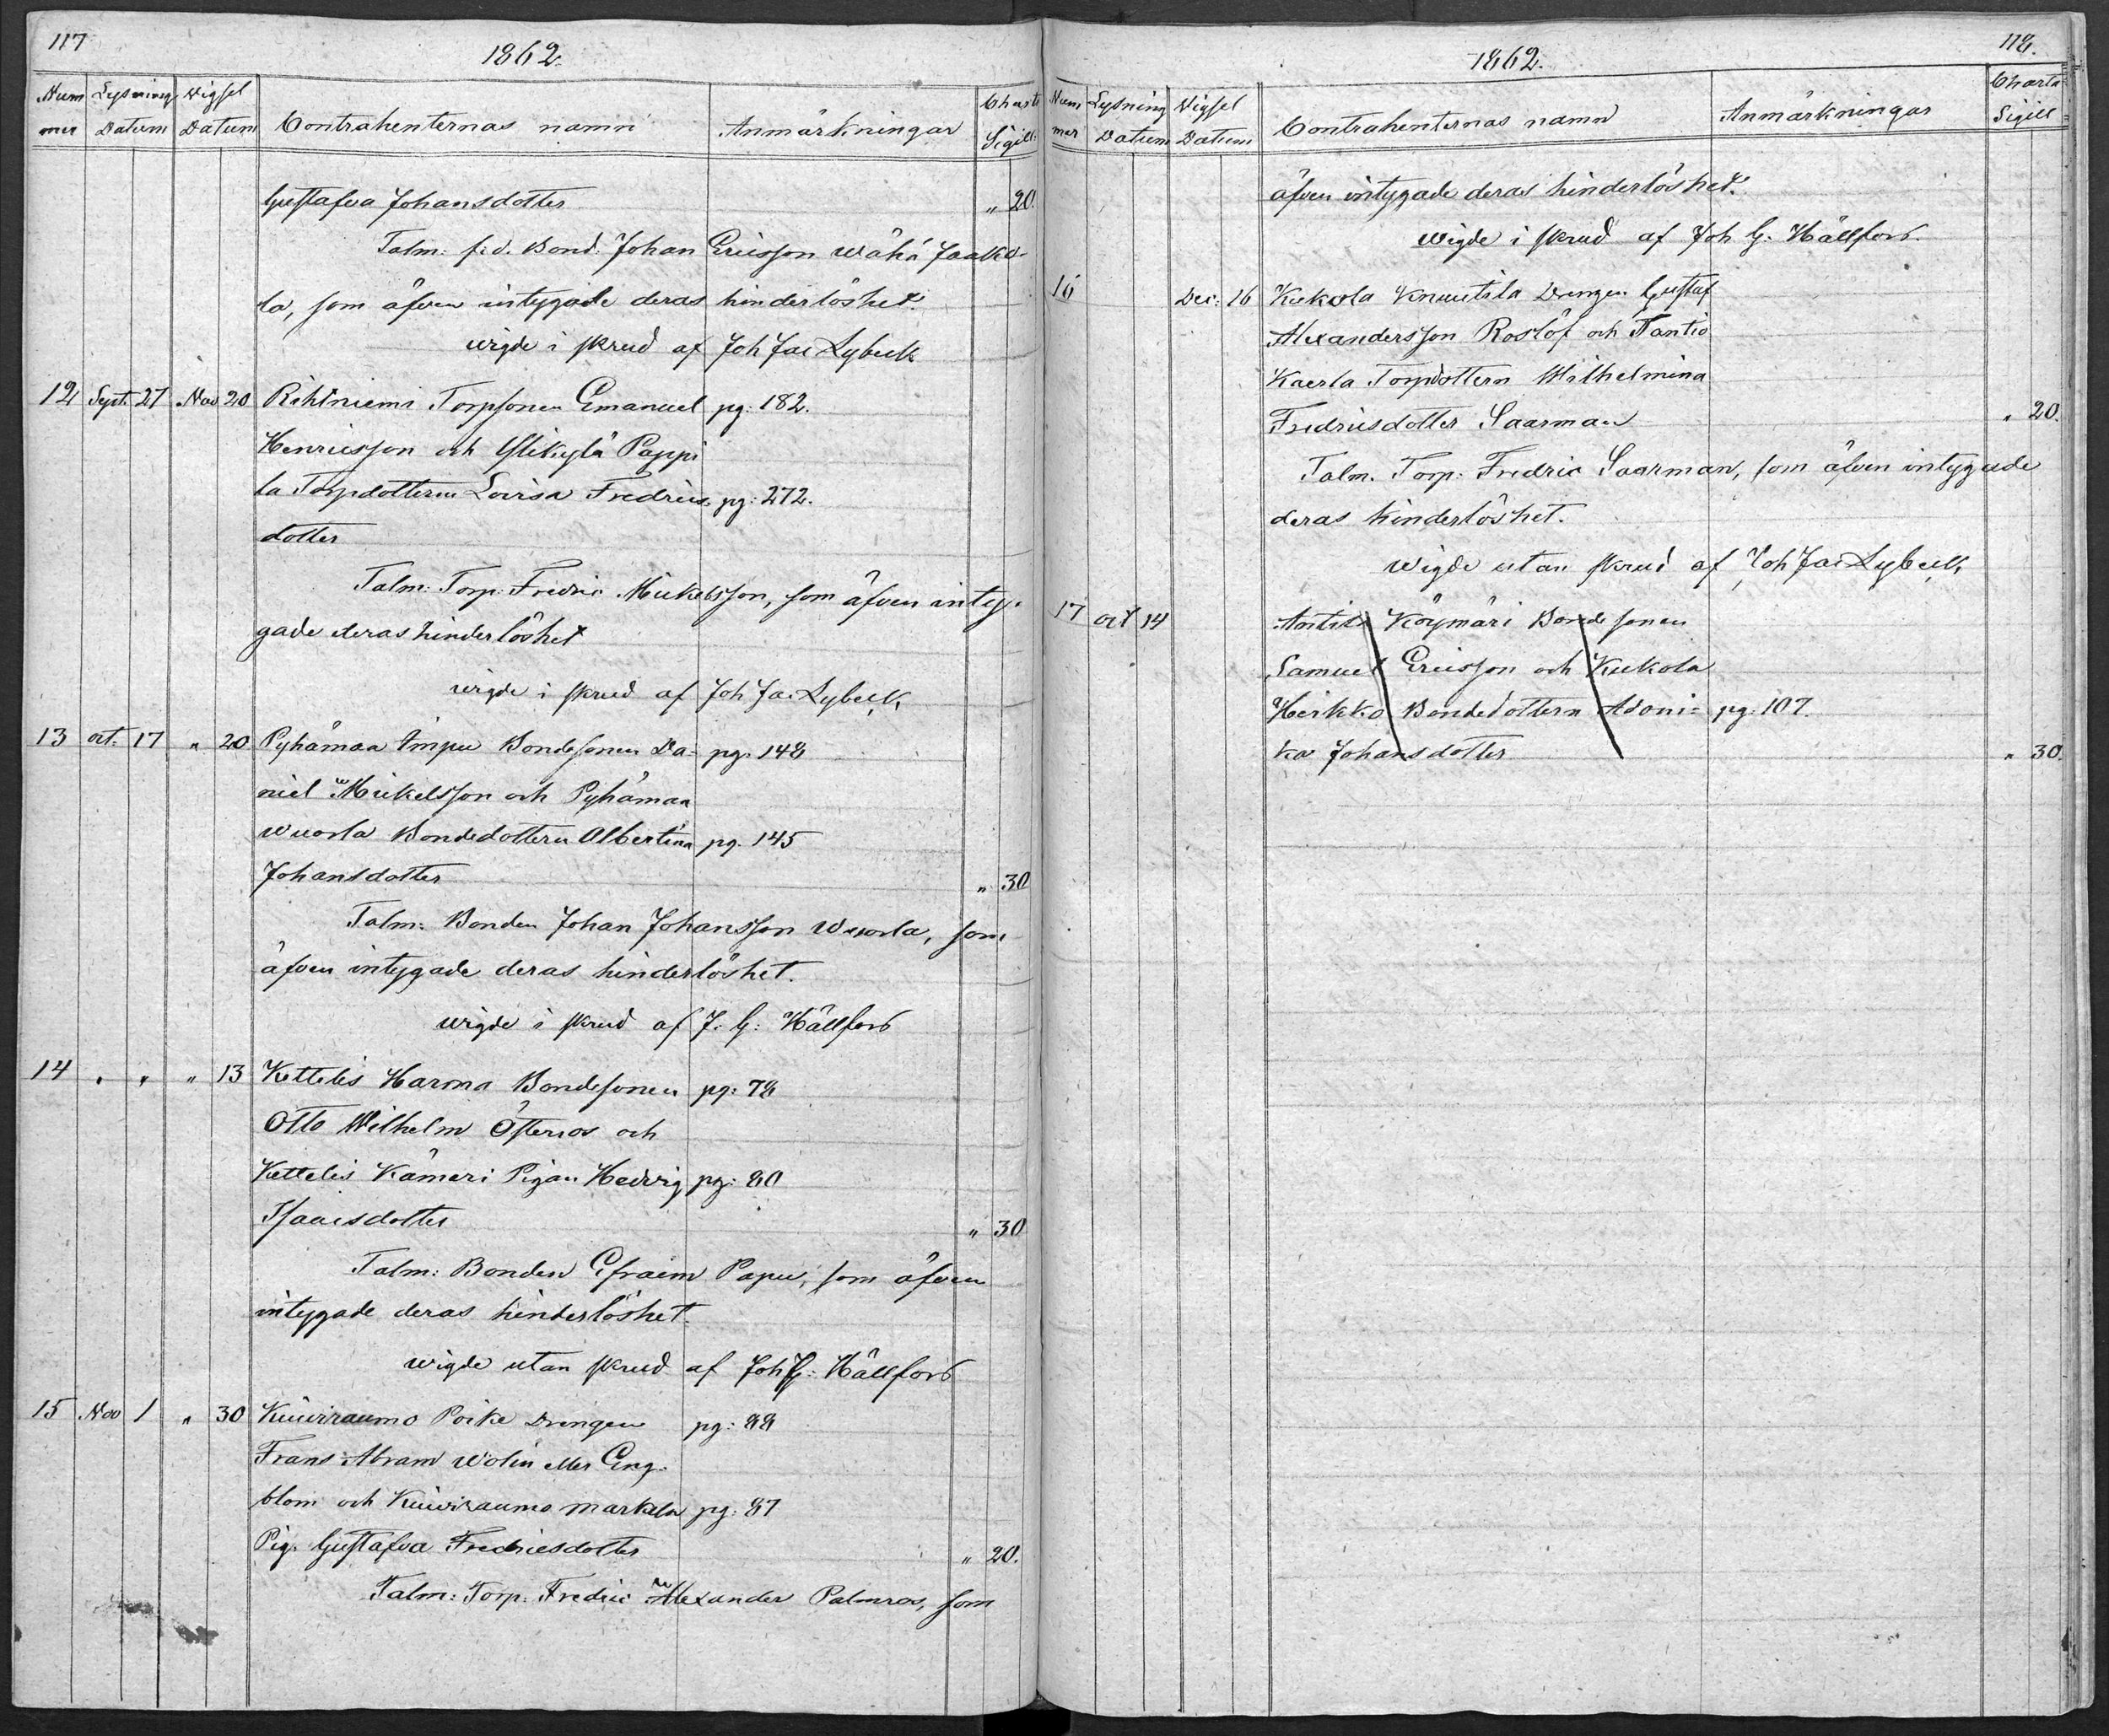 117
1862.
Num Lysning Wigsel Charta
mer Datum Datum Contrahenternas namn Anmärkningar Sigill
Gustafva Johansdotter " 20.
Talm: f.d. Bond. Johan Ericsson Wähä Jaakko-
la, som äfven intygade deras hinderlöshet.
wigde i skrud af Joh Jac Lybeck
12 Sept. 27 Nov 20 Rihtniemi Torpsonen Emanuel pg: 182.
Henricsson och Ylikylä Pappi
la Torpdottern Lovisa Fredrics pg: 272.
dotter
Talm: Torp. Fredric Mickelsson, som äfven inty-
gade deras hinderlöshet
wigde i skrud af Joh Jac Lybeck
13 oct. 17 " 20 Pyhämaa Impu Bondesonen Da- pg. 148
niel Mickelsson och Pyhämaa
Wuorla Bondedottern Albertina pg. 145
Johansdotter " 30
Talm: Bonden Johan Johansson Wuorla, som
äfven intygade deras hinderlöshet.
wigde i skrud af J. G: Hällfors
14 " " " 13 Kettelis Harma Bondesonen pg: 78
Otto Wilhelm Österros och
Kettelis Kämäri Pigan Hedvig pg: 80
Isaacsdotter " 30
Talm: Bonden Efraim Papu, som äfven
intygade deras hinderlöshet.
wigde utan skrud af Joh G: Hällfors
15 Nov 1 " 30 Kuiviraumo Poike Drengen pg: 88
Frans Abram Wolin eller Eng-
blom och Kuiviraumo Markula pg: 87
Pig. Gustafva Fredricsdotter " 20.
Talm: Torp. Fredric Alexander Palmros, som
118.
1862.
Num Lysning Wigsel Charta
mer Datum Datum Contrahenternas namn Anmärkningar Sigill
äfven intygade deras hinderlöshet.
wigde i skrud af Joh G: Hällfors.
16 Dec: 26 Kukola Knuutila Drengen Gustaf
Alexandersson Roslöf och Santio
Kaerla Torpdottern Wilhelmina
Fredricsdotter Saarman " 20.
Talm. Torp: Fredric Saarman, som äfven intygade
deras hinderlöshet.
wigde utan skrud af Joh Jac Lybeck
17 oct 14 Anttila Köymäri Bondesonen
Samuel Ericsson och Kukola
Heikko Bondedottern Adoni- pg. 107.
ka Johansdotter " 30.